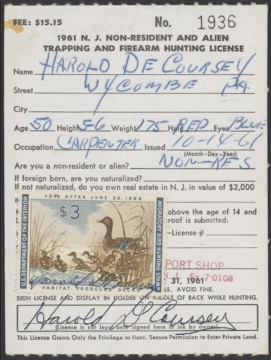 FEE: $15.15 No. 1936
1961 N. J. NON-RESIDENT AND ALIEN
TRAPPING AND FIREARM HUNTING LICENSE
Name HAROLD DE COURSEY
Street WYCOMBE PA.
City
Age 50 Height 5-6 Weight 175 Hair RED Eyes BLUE
Occupation CARPENTER 10-14-61
(Month - Day - Year)
Are you a non-resident or alien? NON-RES
If foreign born, are you naturalized?
If not naturalized, do you own real estate in N. J. in value of $2,000
VOID AFTER JUNE 30, 1962
$3
U.S. DEPARTMENT OF THE INTERIOR
MIGRATORY BIRD HUNTING STAMP
HABITAT PRODUCES DUCKS
above the age of 14 and
roof is submitted.
License #
PORT SHOP
7-0108
31, 1961
SIGN LICENSE AND DISPLAY IN HOLDER ON MIDDLE OF BACK WHILE HUNTING.
Harold DeCoursey
(License is not legal until signed here in ink by owner)
This License Grants Only the Privilege to Hunt. Secure Permission to Enter Private Land.